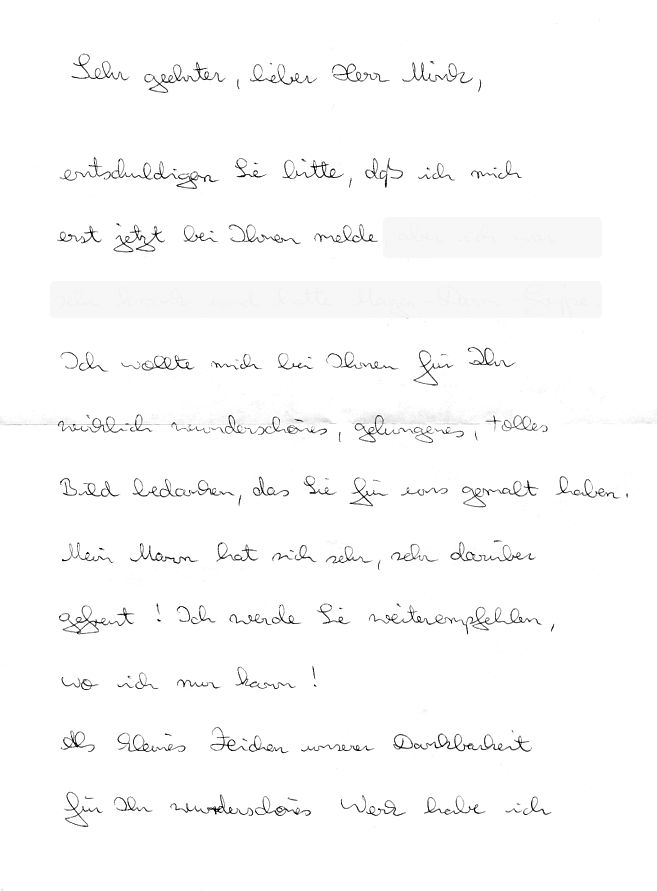 Sehr geehrter, lieber Herr Mirck,
entschuldigen Sie bitte, daß ich mich
erst jetzt bei Ihnen melde aber ich war
sehr krank und hatte Magen-Darm Grippe.
Ich wollte mich bei Ihnen für Ihr
wirklich wunderschönes, gelungenes, tolles
Bild bedanken, das Sie für uns gemalt haben.
Mein Mann hat sich sehr, sehr darüber
gefreut! Ich werde Sie weiterempfehlen,
wo ich nur kann!
Als kleines Zeichen unserer Dankbarkeit
für Ihr wunderschönes Werk habe ich